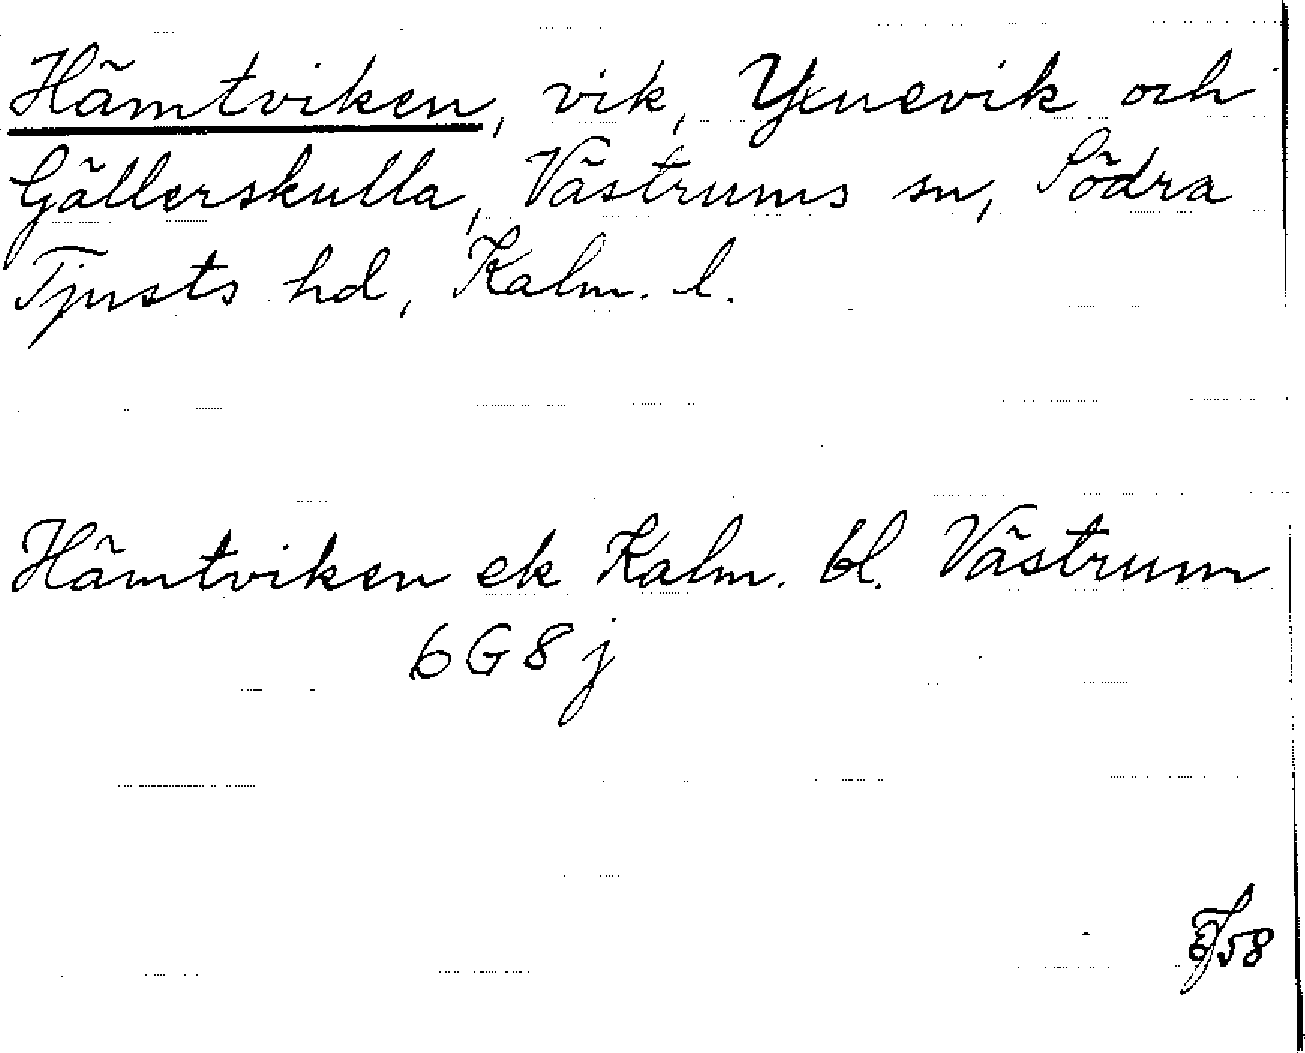 Hämtviken, vik, Yxnevik och
Gällerskulla, Västrums sn, Södra
Tjusts hd, Kalm. l.
Hämtviken ek Kalm. bl. Västrum
6G8j
58